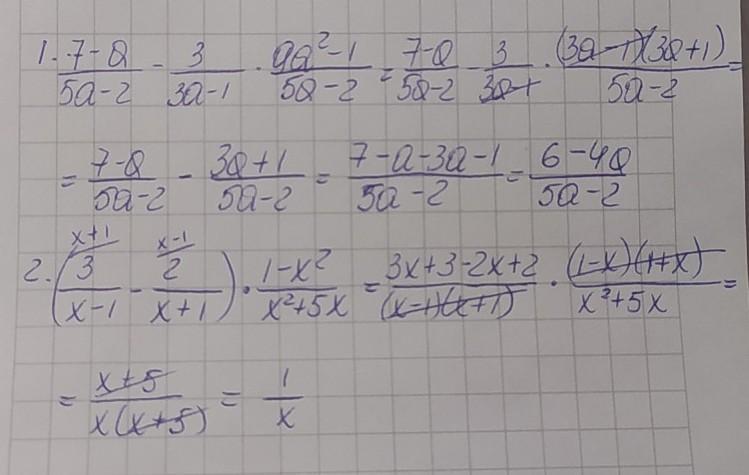 1. (7-a)/(5a-2) - 3/(3a-1) · (9a²-1)/(5a-2) = (7-a)/(5a-2) - 3/(3a-1) · (3a-1)(3a+1)/(5a-2) =
= (7-a)/(5a-2) - (3a+1)/(5a-2) = (7-a-3a-1)/(5a-2) = (6-4a)/(5a-2)
x+1 x-1
2. (3/(x-1) - 2/(x+1)) · (1-x²)/(x²+5x) = (3x+3-2x+2)/((x-1)(x+1)) · (1-x)(1+x)/(x²+5x) =
= (x+5)/(x(x+5)) = 1/x